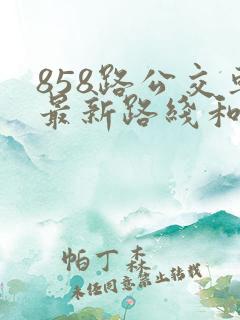 858路公交车
最新路线和
帕丁 森
未经同意禁止转载